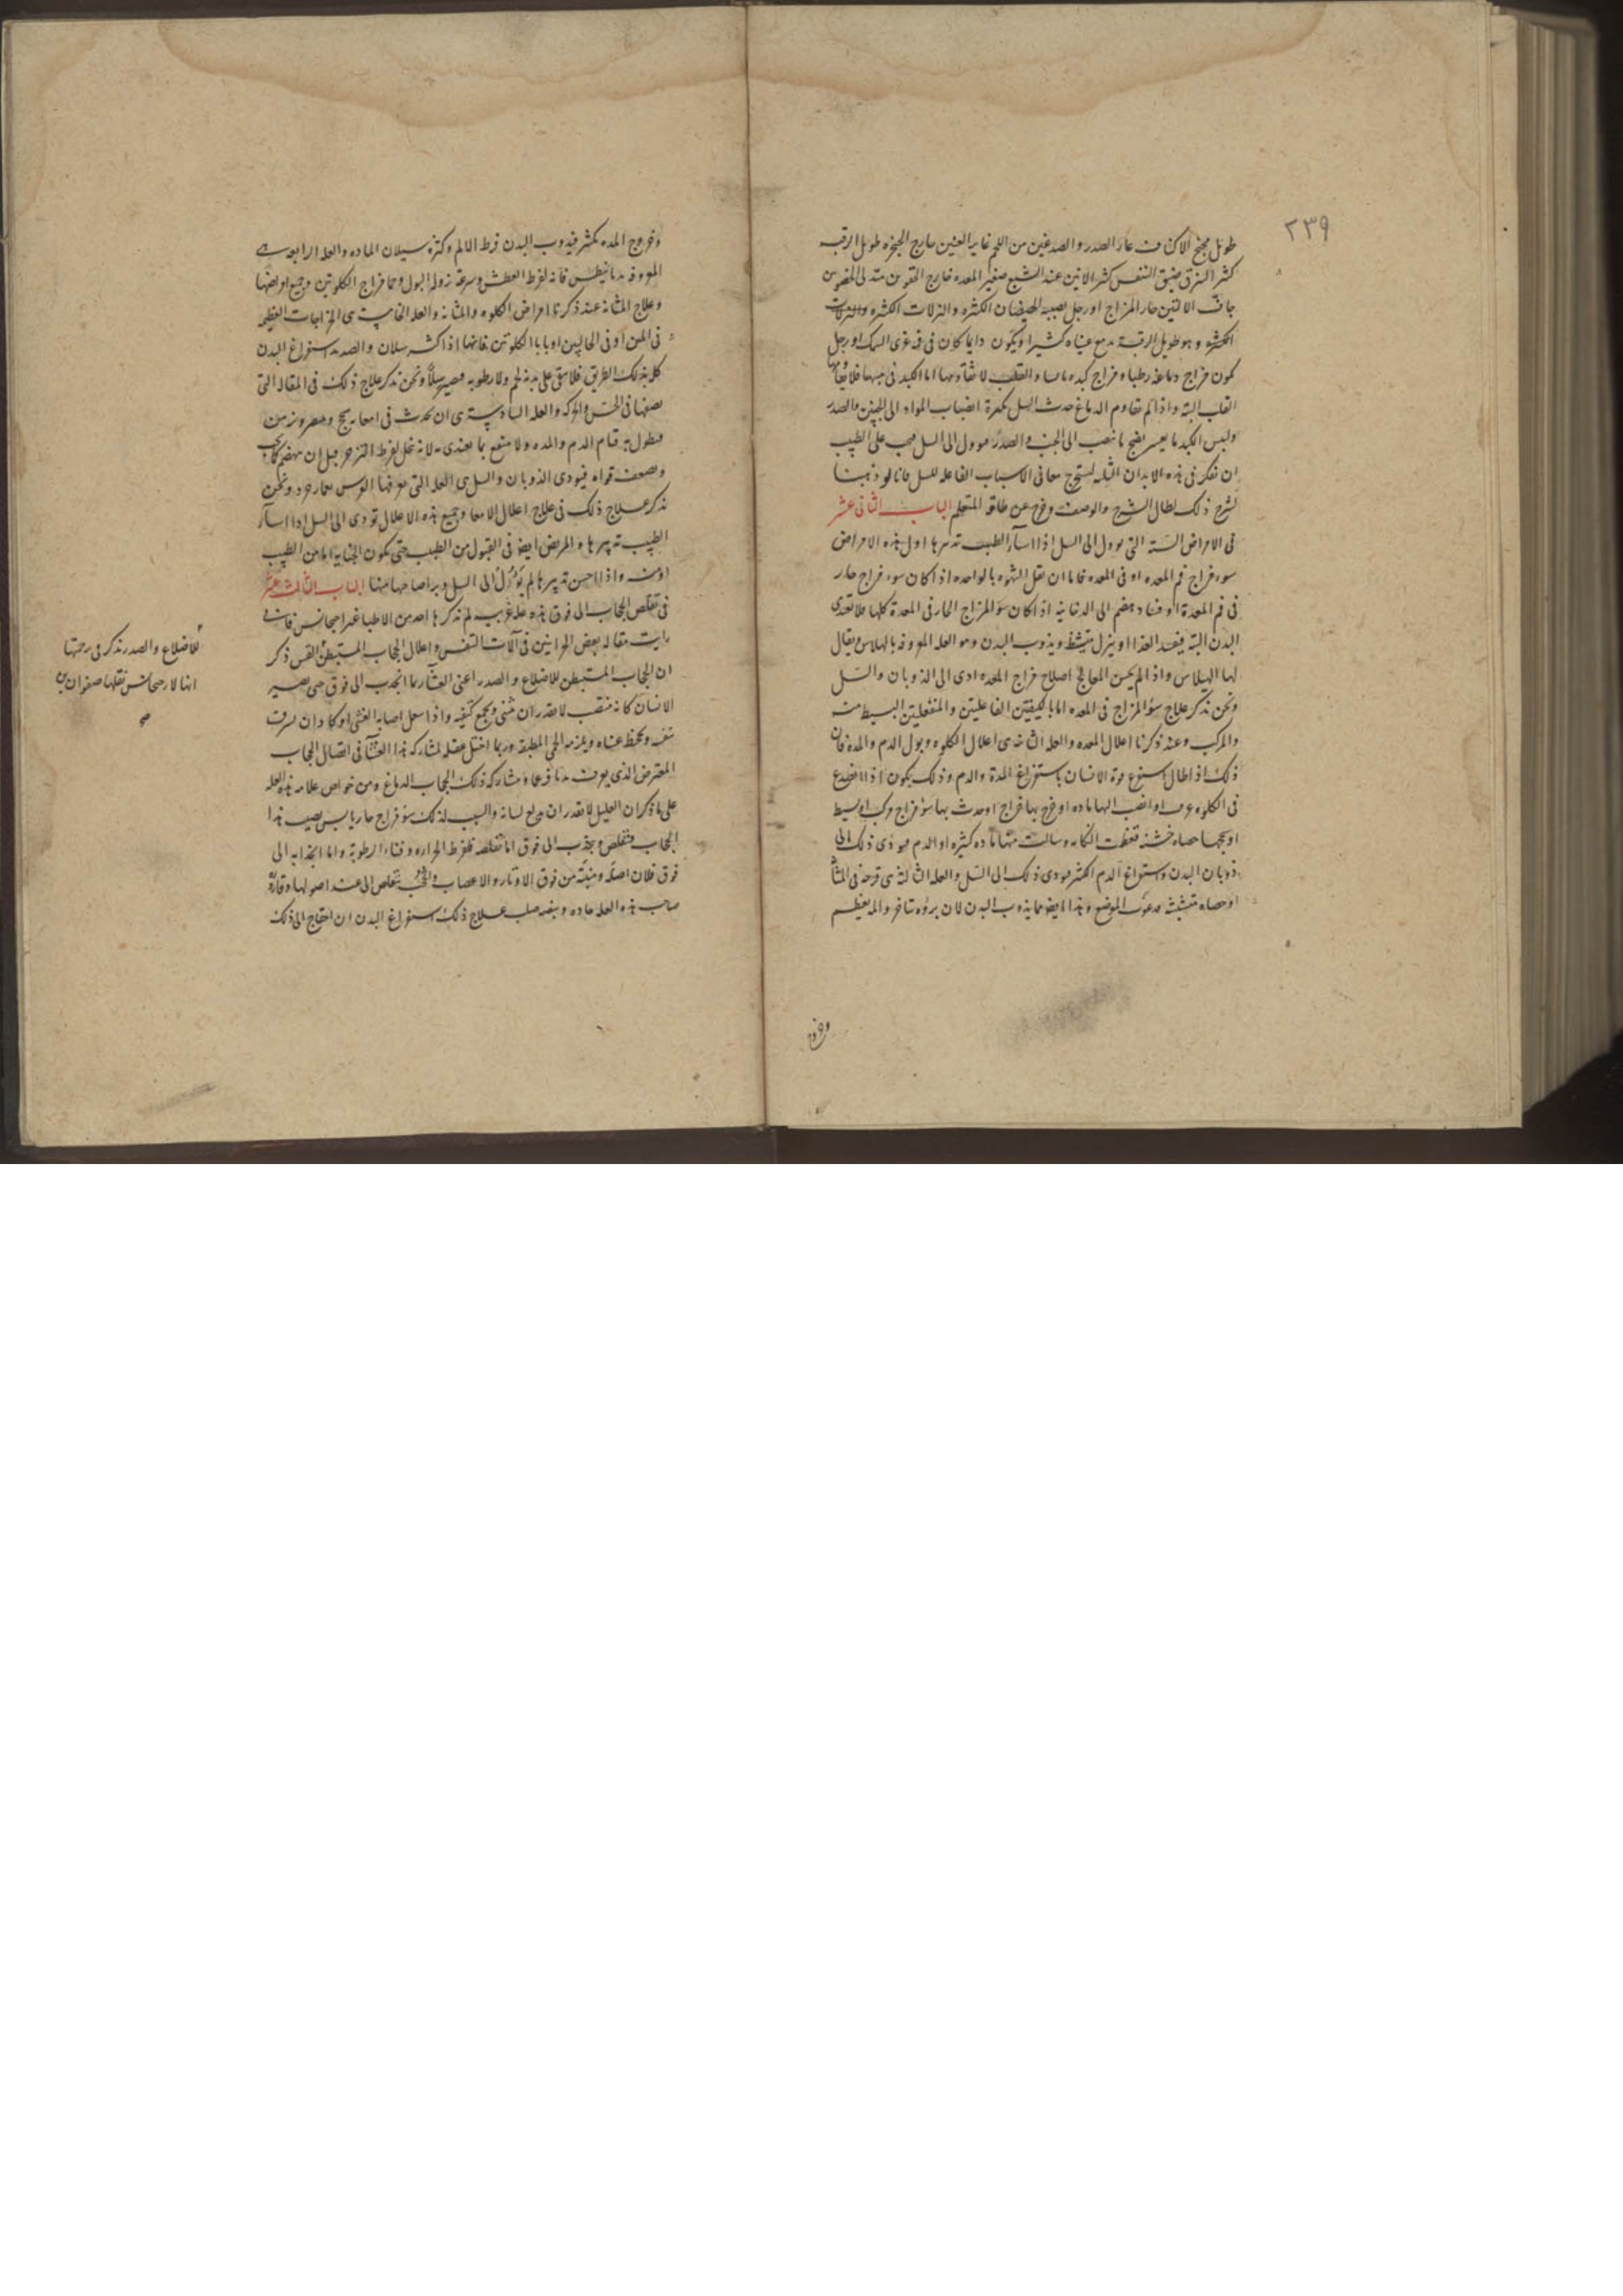 ٢٣٩
طويل مجنح الاكتاف عار الصدر والصدغين من اللحم غاير العينين خارج الحنجره طويل الرقبه
كثير النزق ضيق النفس كثير الانين عند الشبع صغير المعده خارج
جاف حار المزاج او رجل يصيبه الكثيره والنزلات الكثيره والنزلات
الكثيره وهو طويل الرقبة عيناه كثيرا ويكون دايما كان فى فمه غرى السمك او رجل
يكون مزاج دماغه رطبا ومزاج كبده والقلب اما الكبد فى
القلب البته واذا لم تقاوم الدماغ حدث السل بكثرة انصباب المواد الى الجنبين والصدر
وليبس الكبد ما يعسر نضج ما ينصب الى الجنب والصدر الى السل فيجب على الطبيب
ان يفكر فى هذه الابدان معانى الاسباب الفاعله للسل فانا لو ذهبنا
لشرح ذلك لطال الشرح والوصف وخرج عن طاقة المتعلم الباب الثانى عشر
فى الامراض الستة التى توول الى السل اذا اسآ الطبيب تدبيرها اول هذه الامراض
سوء مزاج فم المعده او فى المعده فاما ان تقل الشهوه بالواحده اذا كان سوء مزاج حار
فى فم المعدة او فساد هضم الى الدخانيه اذا كان سوء المزاج الحار فى المعدة كلها فلا تغدى
البدن البته فيفسد الغذا او ينزل ويذوب البدن وهو العله المعروفه بالهلاس ويقال
لها الهيلاس واذا لم يحسن المعالج اصلاح مزاج المعده ادى الى الذوبان والسل
ونحن نذكر علاج سوء المزاج فى المعده اما بالكيفيتين الفاعليتين والمنفعلتين البسيط منه
والمركب وعند ذكرنا اعلال المعده والعله الثانيه هى اعلال الكلوه وبول الدم والمدة فان
ذلك اذا طال قوة الانسان باستفراغ المدة والدم وذلك يكون اذا انصدع
فى الكلوه عرق او انصب اليها ماده او خرج بها خراج او حدث بها سوء مزاج مركب او بسيط
حصاه خشنة وسالت منها ماده كثيره او الدم فيودى ذلك الى
ذوبان البدن واستفراغ الدم الكثير فيودى ذلك الى السل والعله الثالثه هى قرحه فى المثانه
او حصاه متشبثه الموضع وهذا ايضا مما يذوب البدن لان برؤه يتاخر والمه يعظم
وخروج
وخروج المده يكثر فيذوب البدن لفرط الالم وكثرة سيلان الماده والعله الرابعه هى
المعروفه فانه لفرط العطش وسرعة نزول البول وحما مزاج الكلوتين وجميع اعراضها
وعلاج المثانه عند ذكرنا امراض الكلوه والمثانه والعله الخامسة هى الخراجات العظيمه
فى المتن او فى الحالبين او بابا الكلوتين فانها اذا كثر سيلان والصديد استفراغ البدن
كله بذلك الطريق فلا يبقى على بدنه لحم ولا رطوبه فيصير سلاً ونحن نذكر علاج ذلك فى المقاله التى
نصفها فى الحس والحركه والعله السادسة هى ان تحدث فى امعايه سحج
فيطول به قيام الدم والمده ولا ينتفع بما يغتدى به لانه ينحل لفرط التزحر قبل ان ينهضم
ويضعف قواه فيودى الذوبان والسل هى العله التى يعرفها ونحن
نذكر علاج ذلك فى علاج اعلال الامعا وجميع هذه الاعلال تودى الى السل اذا اسآ
الطبيب تدبيرها والمريض ايضا فى القبول من الطبيب حتى يكون الجنايه اما من الطبيب
او منه واذا احسن تدبيرها لم يؤول الى السل وبرا صاحبها منها الباب الثالث عشر
فى تقلص الحجاب الى فوق هذه علة غريب لم يذكرها احد من الاطبا غير ارجيجانس فانى
رايت مقاله بعض الحرانيين فى آلات التنفس واعلال الحجاب المستبطن القس ذكر
ان الحجاب المستبطن للاضلاع والصدر اعنى الغشآ ربما انجذب الى فوق حتى يصير
الانسان كانه منتصب لا يقدر ان ينثنى ويجمع كتفيه واذا سعل اصابه الغشى او كاد ان
نفسه وتجحظ عيناه ويلزمه الحمى المطبقه وربما اختل عقله لمشاركه هذا الغشآ فى اتصال الحجاب
المعترض الذى يعرف ومشاركة ذلك الحجاب الدماغ ومن خواص علامة هذه العله
على ما ذكر ان العليل لا يقدر ان يدلع لسانه والسبب لذلك سوء مزاج حار يابس يصيب هذا
الحجاب فيتقلص ويجذب الى فوق اما تقلصه فلفرط الحراره وفناء الرطوبة واما انجذابه الى
فوق فلان اصله ومنبته من فوق الاوتار والاعصاب والحجب يتقلص الى عند اصولها وقاروره
صاحب هذه العله حاده ونبضه صلب علاج ذلك استفراغ البدن ان احتاج الى ذلك
للاضلاع والصدر نذكر فى رحمتها
انها لارجيجانس نقلها صفوان